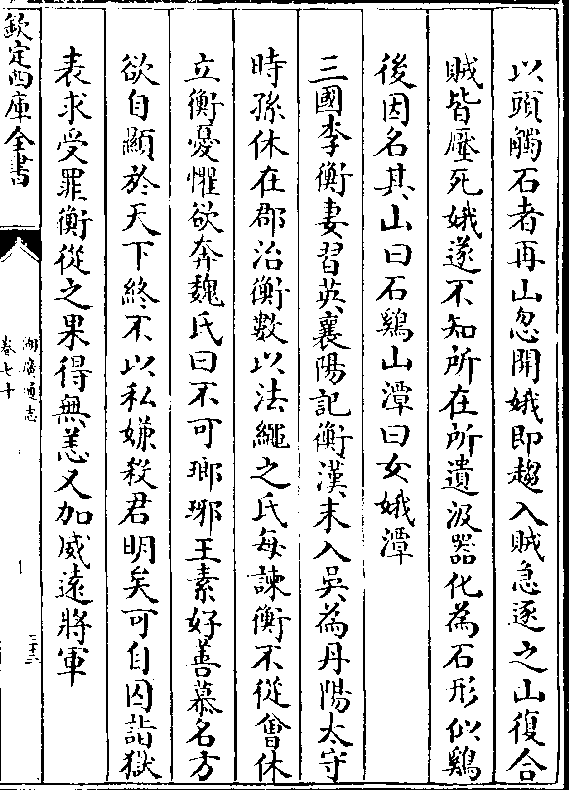 以頭觸石者再山忽開娥即趨入賊急逐之山復合
賊皆壓死娥遂不知所在所遺汲器化為石形似鷄
後因名其山曰石鷄山潭曰女娥潭
三國李衡妻習英襄陽記衡漢末入吳為丹陽太守
時孫休在郡治衡數以法繩之氏每諫衡不從會休
立衡憂懼欲奔魏氏曰不可瑯琊王素好善慕名方
欲自顯於天下終不以私嫌殺君明矣可自囚詣獄
表求受罪衡從之果得無恙又加威遠將軍
欽定四庫全書
湖廣通志
卷七十
三十二